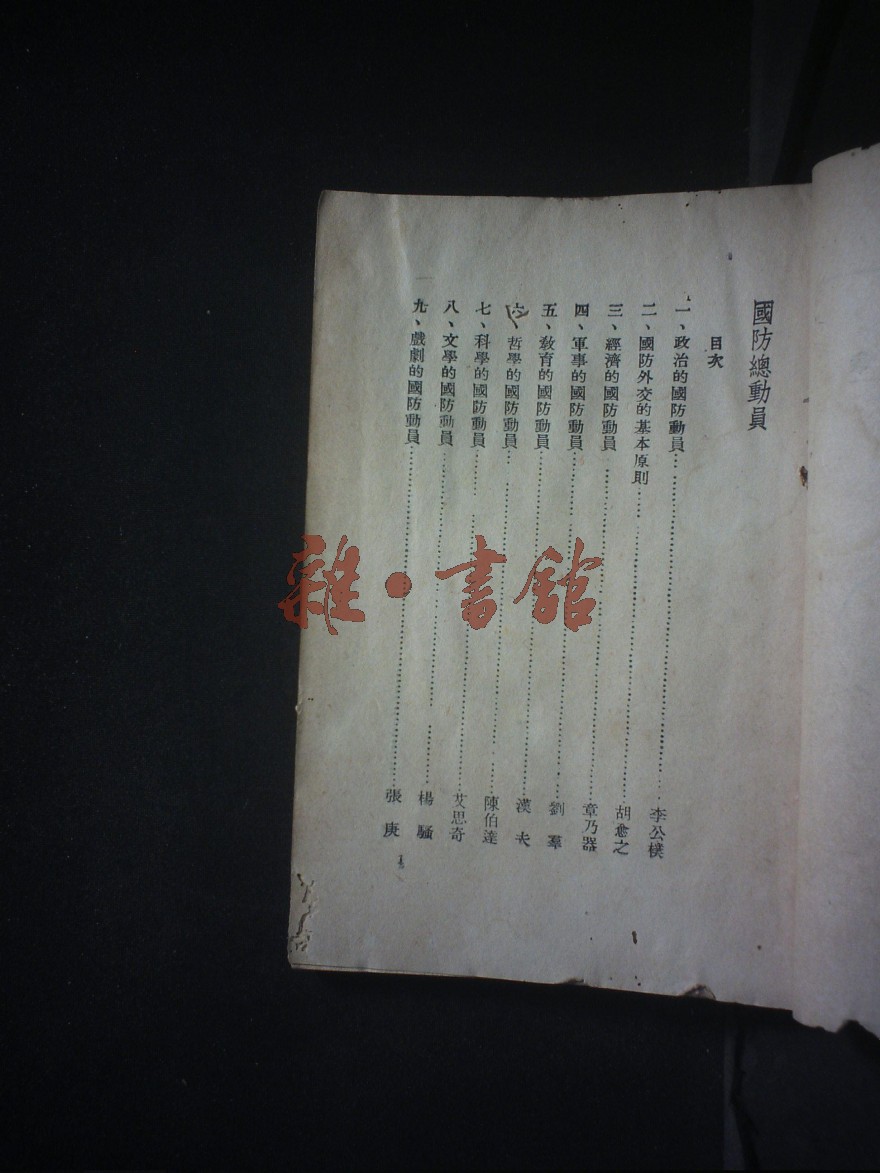 國防總動員
目次
一、政治的國防動員 李公樸
二、國防外交的基本原則 胡愈之
三、經濟的國防動員 章乃器
四、軍事的國防動員 劉羣
五、敎育的國防動員 漢夫
六、哲學的國防動員 陳伯達
七、科學的國防動員 艾思奇
八、文學的國防動員 楊騷
九、戲劇的國防動員 張庚
雜·書館